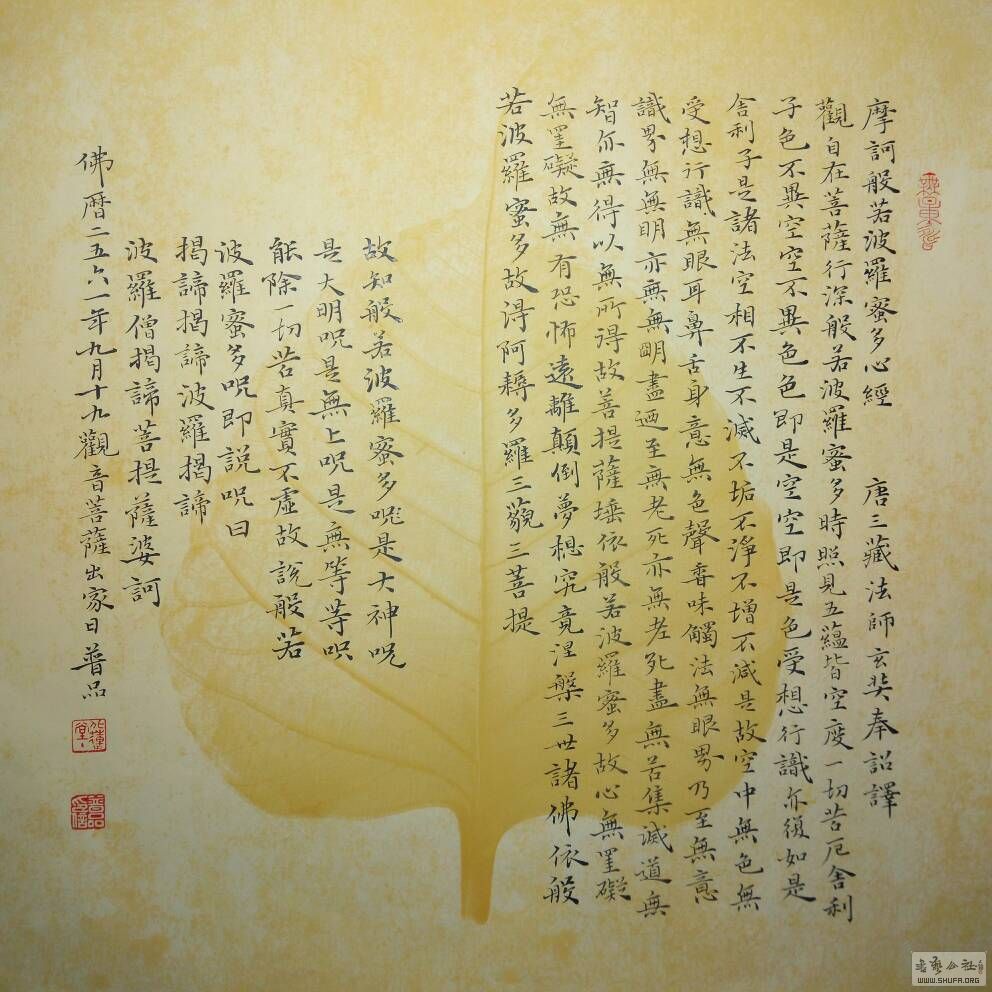 摩訶般若波羅蜜多心經 唐三藏法師玄奘奉詔譯
觀自在菩薩行深般若波羅蜜多時照見五蘊皆空度一切苦厄舍利
子色不異空空不異色色即是空空即是色受想行識亦復如是
舍利子是諸法空相不生不滅不垢不淨不增不減是故空中無色無
受想行識無眼耳鼻舌身意無色聲香味觸法無眼界乃至無意
識界無無明亦無無明盡迺至無老死亦無老死盡無苦集滅道無
智亦無得以無所得故菩提薩埵依般若波羅蜜多故心無罣礙
無罣礙故無有恐怖遠離顛倒夢想究竟涅槃三世諸佛依般
若波羅蜜多故得阿耨多羅三藐三菩提
故知般若波羅蜜多呪是大神呪
是大明呪是無上呪是無等等呪
能除一切苦真實不虛故説般若
波羅蜜多呪即説呪曰
揭諦揭諦波羅揭諦
波羅僧揭諦菩提薩婆訶
佛曆二五六一年九月十九觀音菩薩出家日普品
WWW.SHUFA.ORG